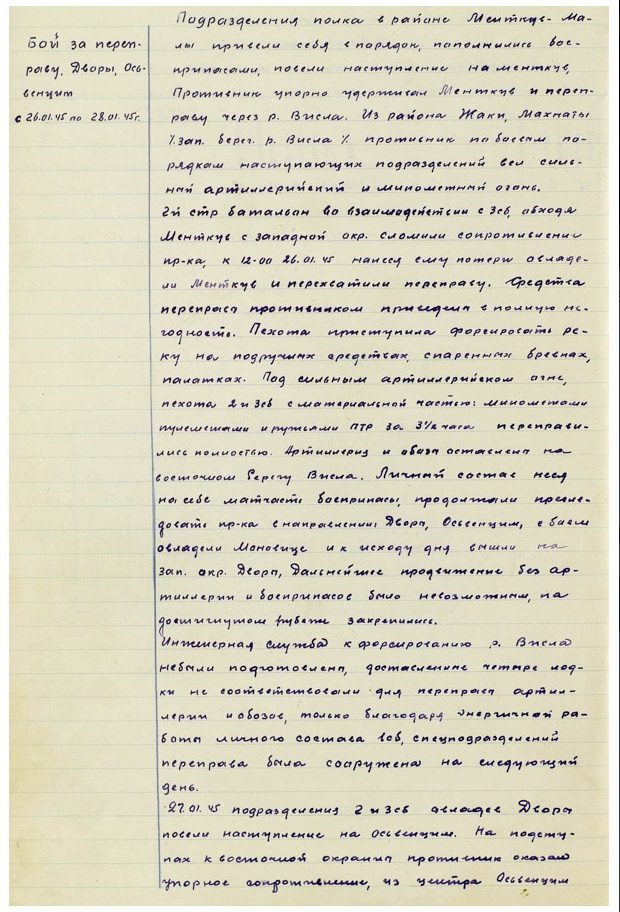 Бой за переп-
раву, Дворы, Ось-
венцим
с 26.01.45 по 28.01.45г.
Подразделения полка в районе Менткув-Ма-
лы привели себя в порядок, пополнились бое-
припасами, повели наступление на Менткув,
Противник упорно удерживал Менткув и переп-
раву через р. Висла. Из района Жаки, Махнаты
%зап. берег. р. Висла% противник по боевым по-
рядкам наступающих подразделений вел силь-
ный артиллерийский и минометный огонь.
2й стр батальон во взаимодействии с 3сб, обходя
Менткув с западной окр. сломили сопротивление
пр-ка, к 12-00 26.01.45 нанеся ему потери овладе-
ли Менткув и перехватили переправу. Средства
переправ противником приведены в полную не-
годность. Пехота приступила форсировать ре-
ку на подручных средствах, спаренных бревнах,
палатках. Под сильным артиллерийском огне,
пехота 2 и 3сб с материальной частью: минометами
пулеметами и ружьями ПТР за 3½ часа переправи-
лись полностью. Артиллерия и обоза оставлены на
восточном берегу Висла. Личный состав неся
на себе матчасть боеприпасы, продолжали пресле-
довать пр-ка в направлении: Дворы, Осьвенцим, с боем
овладели Моновице и к исходу дня вышли на
зап. окр. Дворы, Дальнейшее продвижение без ар-
тиллерии и боеприпасов было невозможным, на
достигнутом рубеже закрепились.
Инженерная служба к форсированию р. Висла
небыли подготовлены, доставленные четыре лод-
ки не соответствовали для переправ артил-
лерии и обозов, только благодаря энергичной ра-
боты личного состава 1сб, спецподразделений
переправа была сооружена на следующий
день.
27.01.45 подразделения 2 и 3сб овладев Дворы
повели наступление на Осьвенцим. На подсту-
пах к восточной окраины противник оказал
упорное сопротивление, из центра Осьвенцим